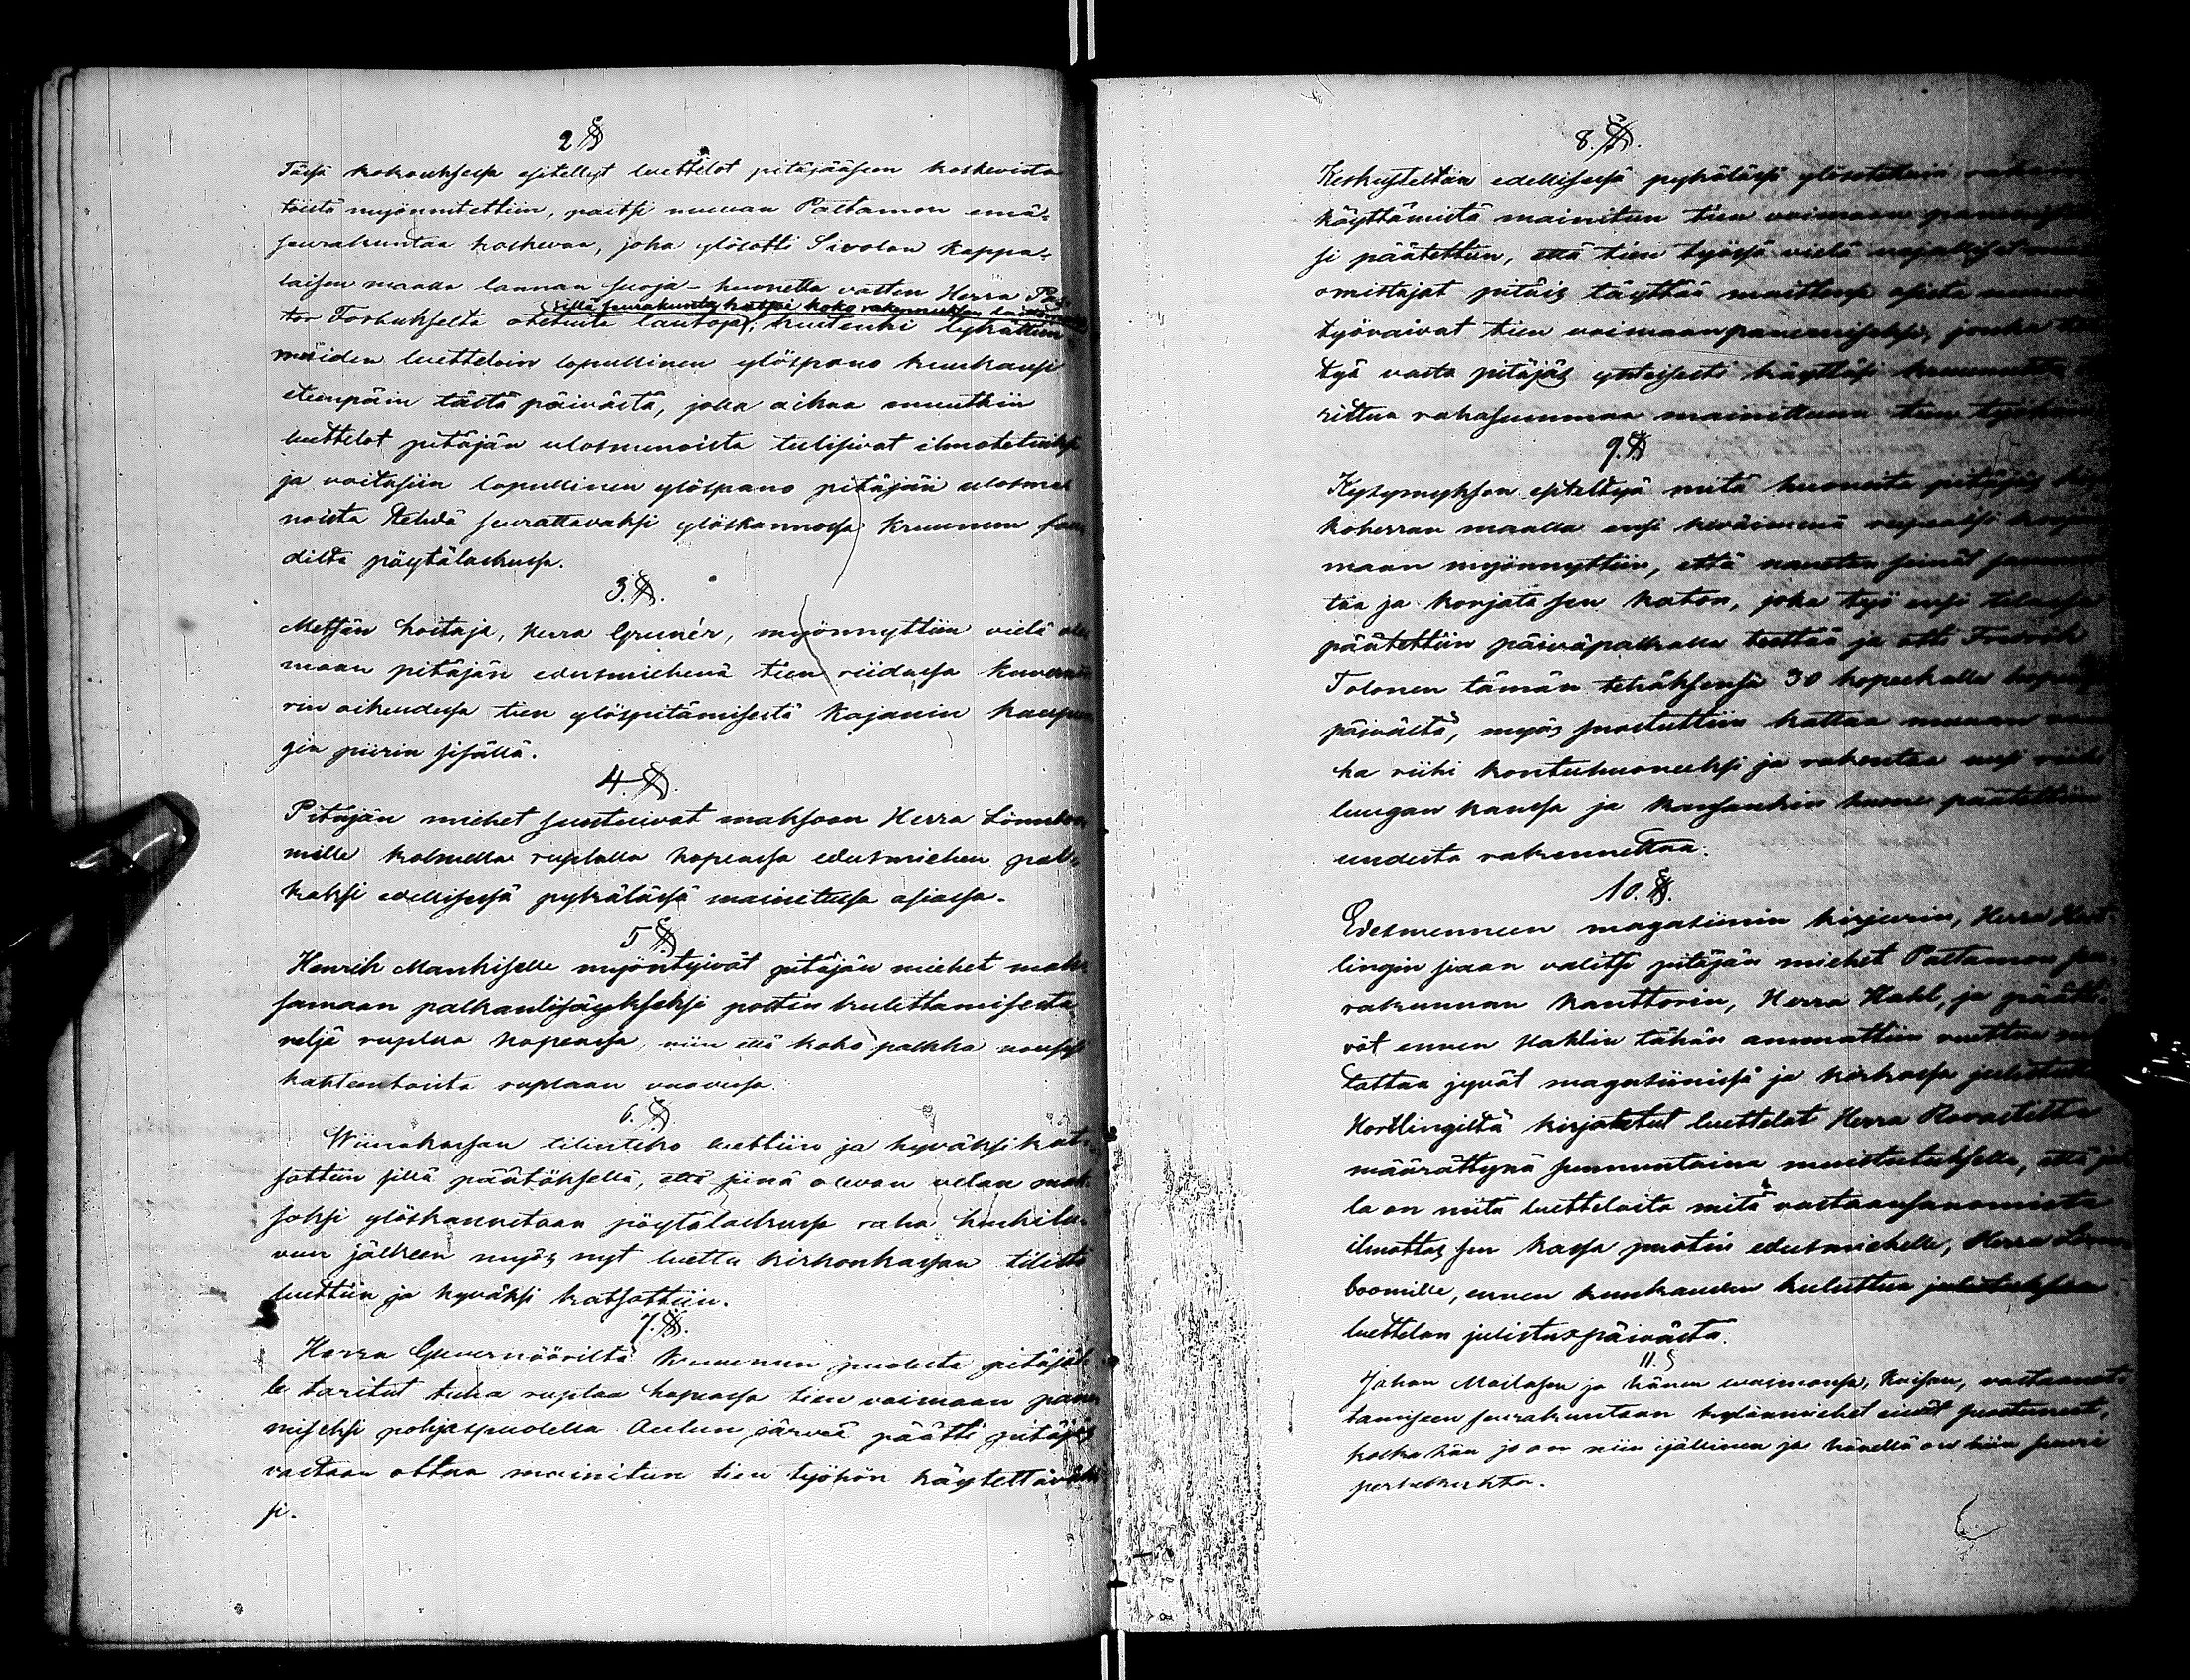 2 §
Täsä kokouksessa esitellyt luettelot pitäjääseen koskevista
töistä myönnitettiin, paitsi muuan Paltamon emä-
seurakuntaa koskevaa, joka ylösotti Sivolan kappa-
laisen maalla lannan suoja-huonetta vasten Herra Pas-
sillä seurakunta katsoi koko rakennuksen
tor Forbukselta otetuita lautoja, kuitenki lykättiin
muiden luetteloin lopullinen ylöspano kuukausi
eteenpäin tästä päivästä, jolla aikaa muutkin
luettelot pitäjän ulosmenoista tulisivat ilmotetuiksi
ja voitasiin lopullinen ylöspano pitäjän ulosme-
noista tehdä seurattavaksi ylöskannossa kruunun fou-
dilta pöytälaskussa.
3. §.
Metsän hoitaja, herra Grunér, myönnyttiin vielä ole-
maan pitäjän edusmiehenä tien riidassa kuvernöö-
rin oikeudessa tien ylöspitämisestä Kajanin kaupun-
gin piirin sisällä.
4. §.
Pitäjän miehet suostuivat maksaan Herra Lönnboo-
mille kolmella ruplalla hopeassa edusmiehen pal-
kaksi edellisessä pykälässä mainitussa asiassa.
5 §.
Henrik Mankiselle myöntyivät pitäjän miehet mak-
samaan palkanlisäykseksi postin kulettamisesta
neljä ruplaa hopeassa, niin että koko palkka nousisi
kahteentoista ruplaan vuodessa.
6. §.
Wiinakassan tilinteko luettiin ja hyväksi kat-
sottiin sillä päätöksellä, että siinä olevan velan mak-
soksi ylöskannetaan pöytälaskussa raha henkilu-
vun jälkeen myös nyt luettu kirkonkassan tilistö
luettiin ja hyväksi katsottiin.
7. §.
Herra Guvernööriltä kruunun puolesta pitäjäl-
le taritut tuha ruplaa hopeassa tien voimaan pane-
miseksi pohjaspuolella Oulun järveä päätti pitäjäs
vastaan ottaa mainitun tien työhön käytettäväk-
si.
8. §.
Keskusteltiin edellisessä pykälässä ylösotetuin rahain
käyttämistä mainitun tien voimaan panemisek-
si päätettiin, että tien työssä vielä vajalliset
omistajat pitäis täyttää maittensa osista
työvaivat tien voimaanpanemiseksi, jonka
työ vasta pitäjäs yhteisesti käyttäsi kruunulta
rittua rahasummaa mainittuun tien työhön
9. §
Kysymyksen esiteltyä mitä huoneita pitäjäs
koherran maalla ensi keväimenä rupeaisi korjaa-
maan myönnyttiin, että navetan seinät
taa ja korjata sen katon, joka työ ensi
päätettiin päiväpalkalla teettää ja otti Fredrik
Tolonen tämän tehdäksensä 30 kopeekalla hopeassa
päivältä, myös suostuttiin kattaa muuan
ha riihi kontuhuoneeksi ja rakentaa uusi riihi
luugan kanssa ja kansankin huone päätettiin
uudesta rakennettaa.
10. §.
Edesmenneen magasiinin kirjurin, Herra Hort-
lingin siaan valitsi pitäjän miehet Paltamon seu-
rakunnan kanttorin, Herra Hahl, ja päätti-
vät ennen Hahlin tähän ammattiin
tattaa jyvät magasiinissä ja kirkossa julistuta
Hortlingiltä kirjotetut luettelot Herra Rovastilta
määrättynä sunnuntaina muistutuksella, että jol-
la on niitä luetteloita mitä vastaansanomista
ilmottas sen kassa puotin edusmiehelle, Herra Lönn-
boomille, ennen kuukauden kuluttua julistuksen
luettelon julistuspäivästä.
11. §
Johan Moilasen ja hänen waimonsa, Kaisan, vastaanot-
tamiseen seurakuntaan kylänmiehet eivät suostuneet,
koska hän jo on niin ijällinen ja hänellä on kiin suuri
perhekunta.